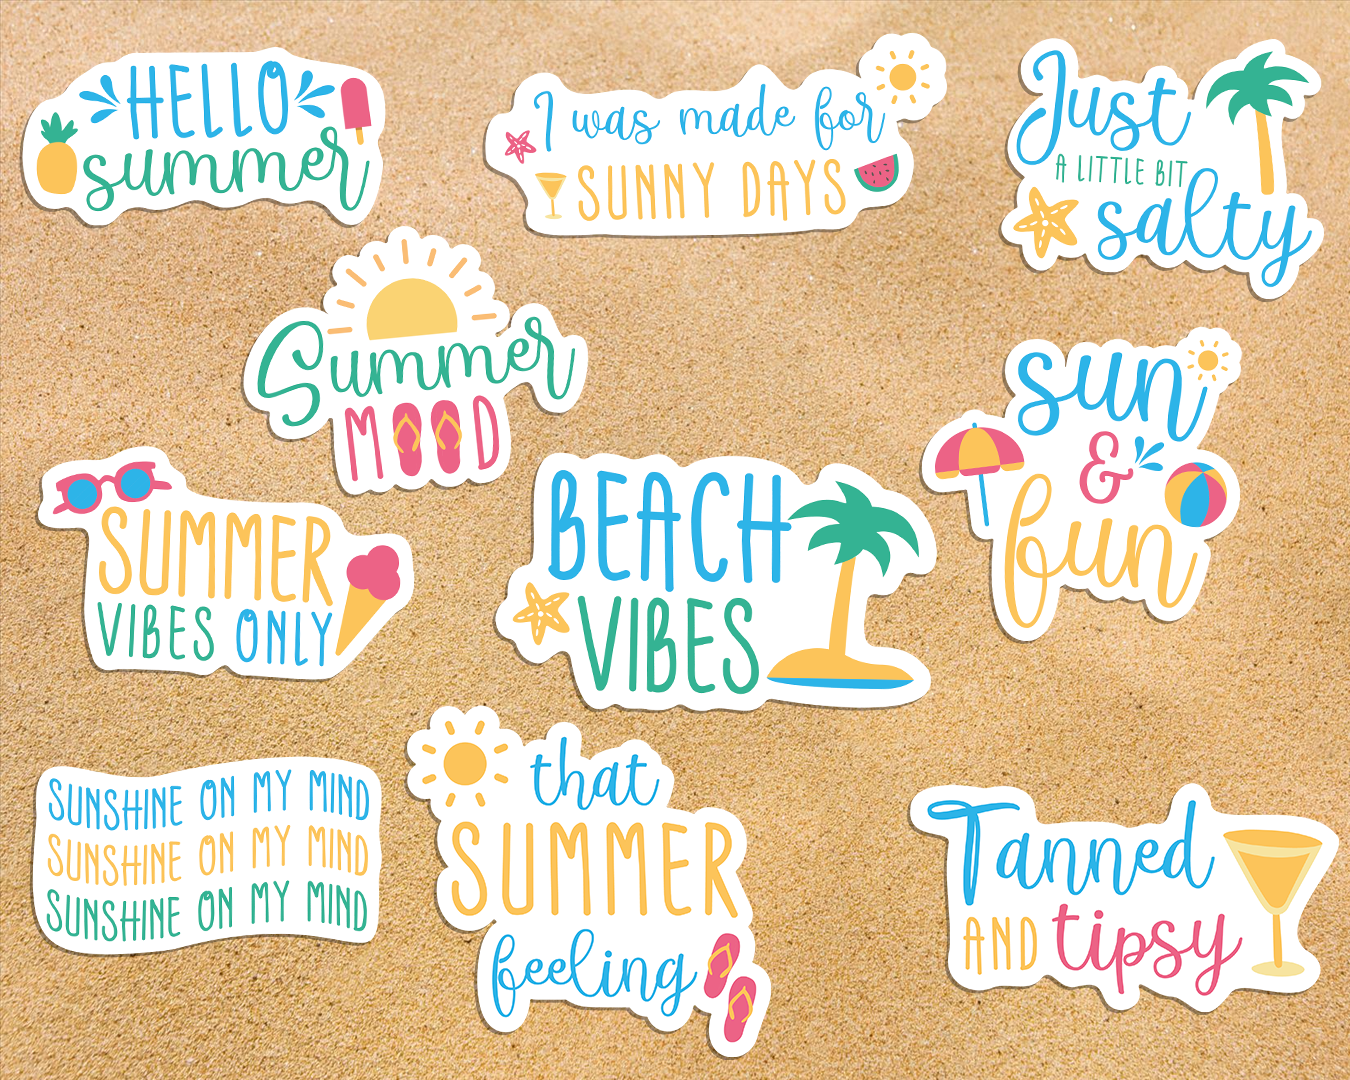 HELLO
summer
I was made for
SUNNY DAYS
Just
A LITTLE BIT
salty
Summer
MOOD
sun
&
fun
SUMMER
VIBES ONLY
BEACH
VIBES
SUNSHINE ON MY MIND
SUNSHINE ON MY MIND
SUNSHINE ON MY MIND
that
SUMMER
feeling
Tanned
AND tipsy